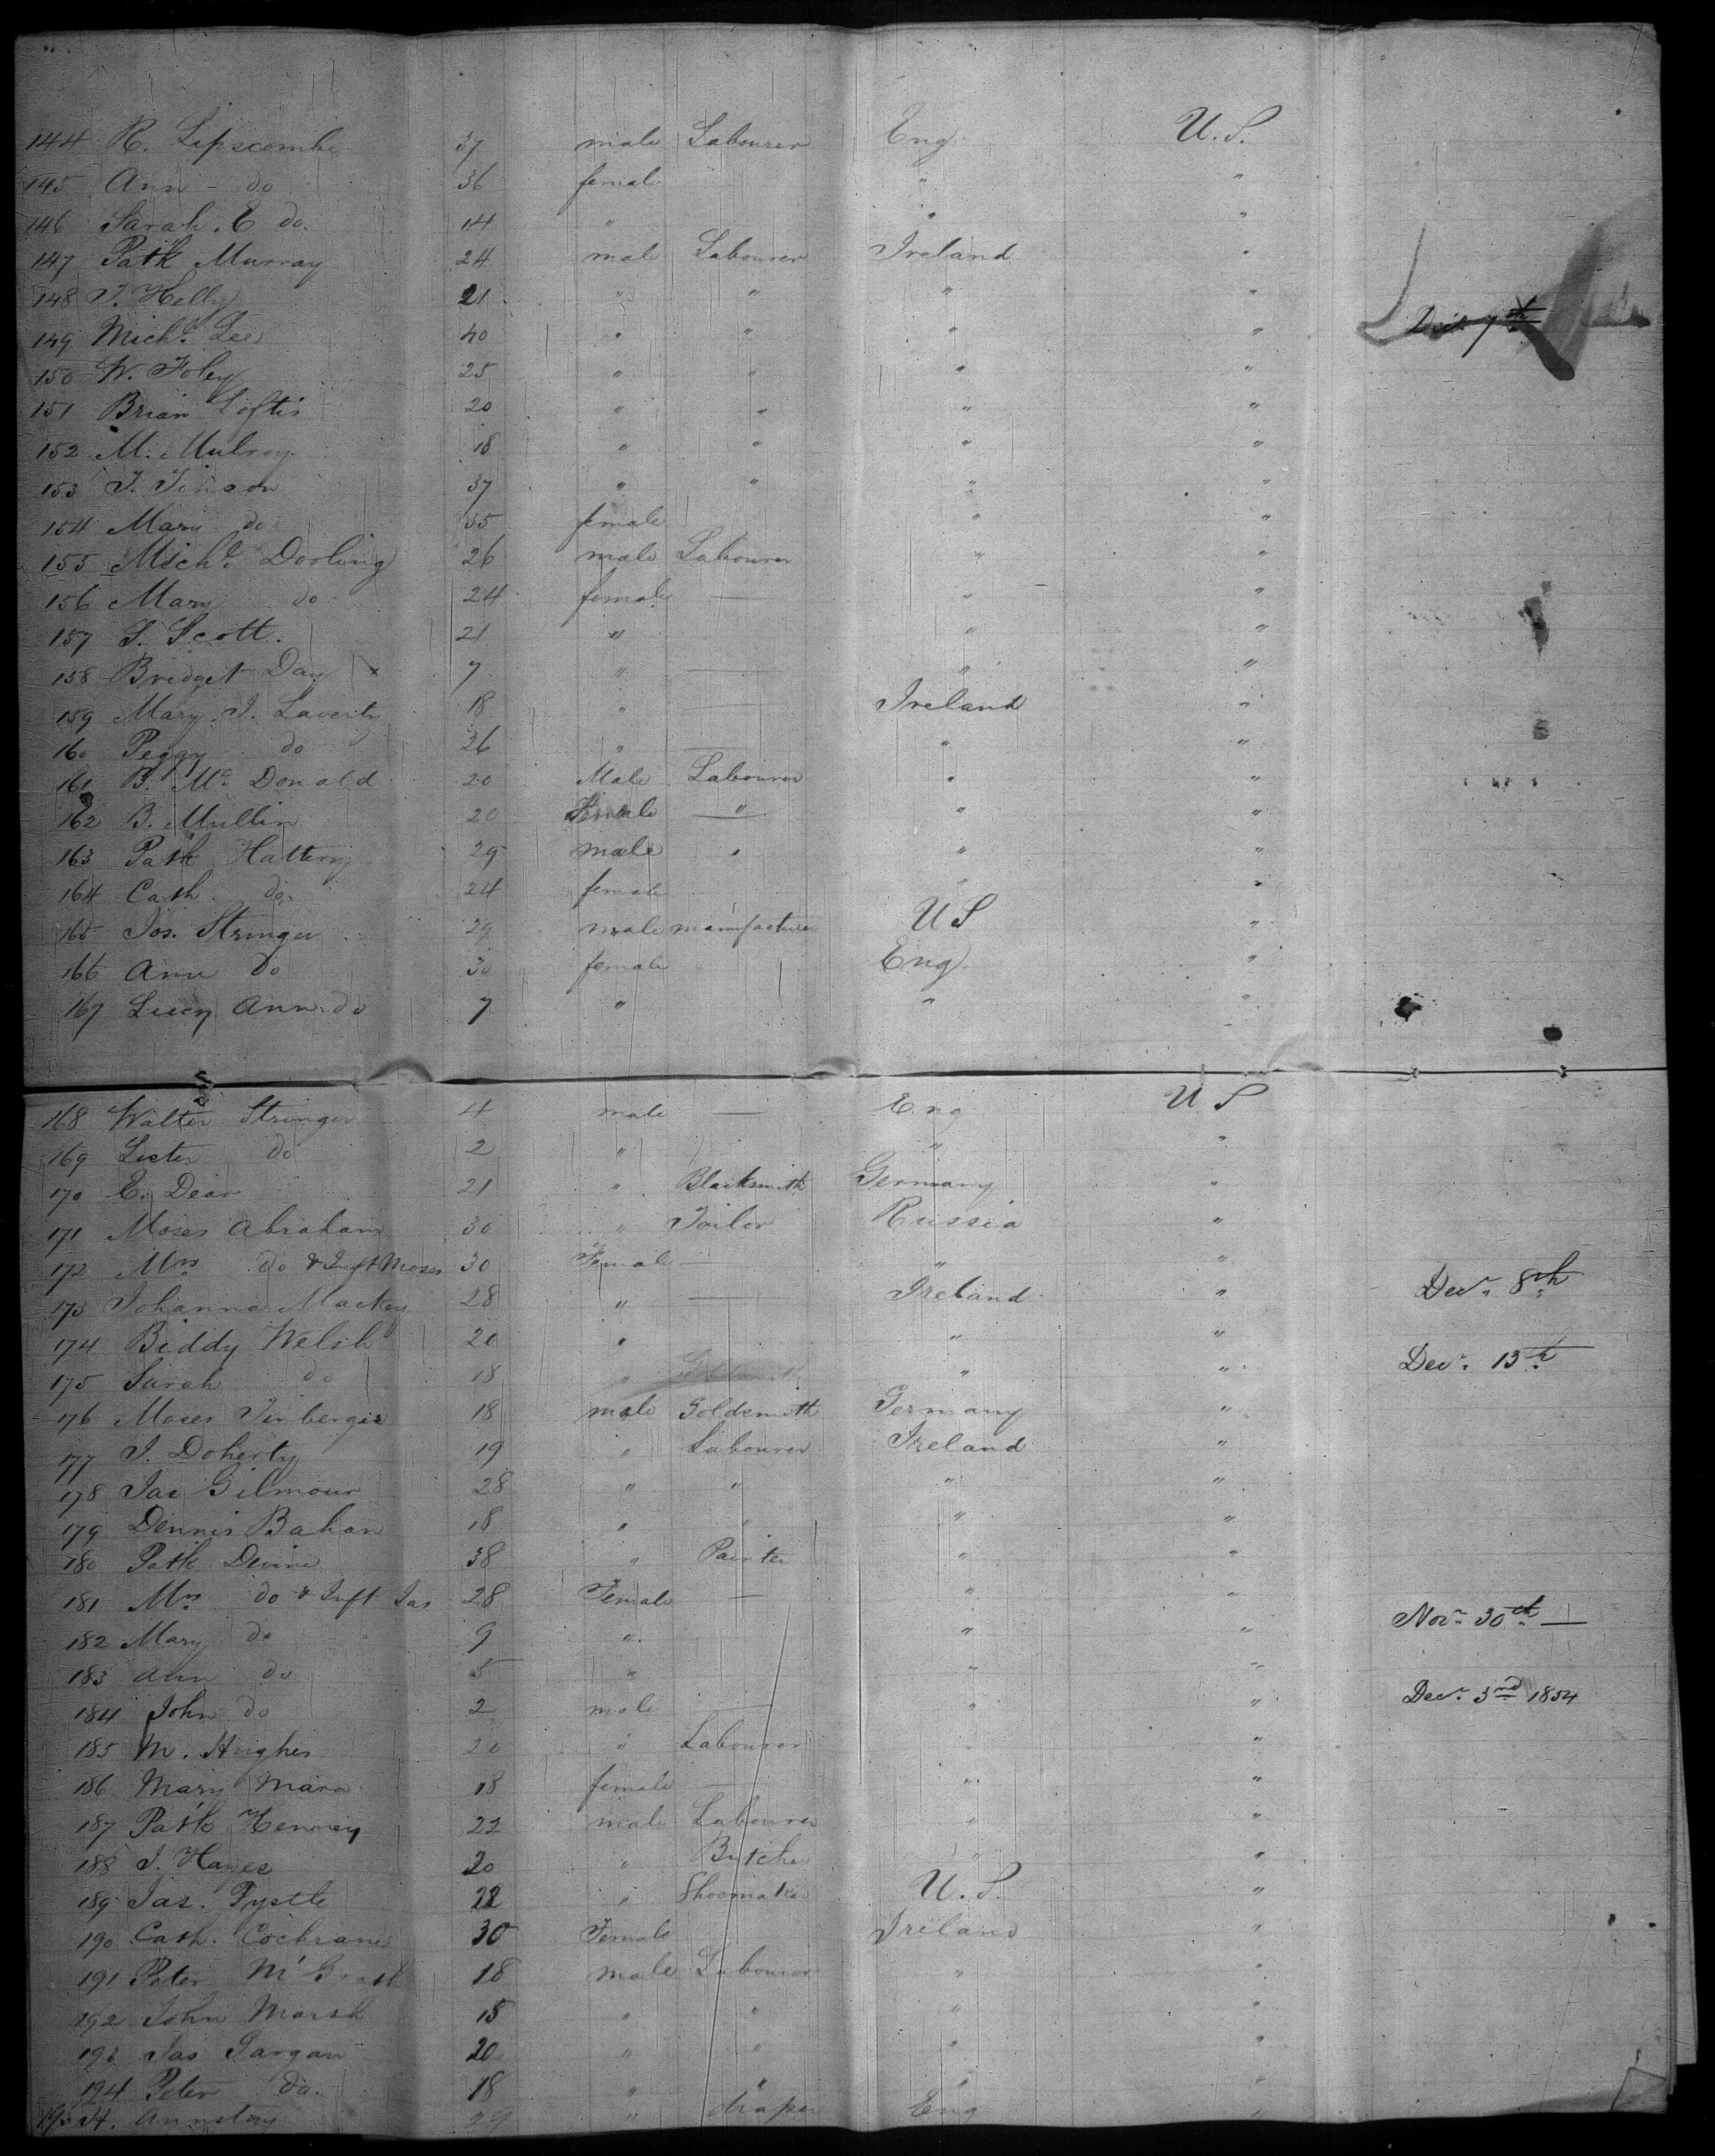 144 R. Lipscombe 37 male Labourer Eng. U.S.
145 Ann - do 36 female " "
146 Sarah. E do. 14 " " "
147 Patk Murray 24 male Labourer Ireland "
148 J. Helly 21 " " " "
149 Michl. Lee 40 " " " " Decr 7th
150 W. Foley 25 " " " "
151 Brian Loftis 20 " " " "
152 M. Mulroy 18 " " " "
153 J. Tinson 37 " " " "
154 Mary do 35 female " "
155 Michl. Dooling 26 male Labourer " "
156 Mary do 24 female — " "
157 S. Scott. 21 " " "
158 Bridget Day x 7 " — " "
159 Mary. J. Laverty 18 " — Ireland "
160 Peggy do 26 " — " "
161 B. Mc Donald 20 Male Labourer " "
162 B. Mullin 20 Female " " "
163 Patk Hattery 29 male " " "
164 Cath. do. 24 female " "
165 Jos. Stringer 29 male manufacturer U S "
166 Ann do 30 female Eng. "
167 Lucy Ann do 7 " " "
168 Walter Stringer 4 male — Eng U S
169 Lister do 2 " " "
170 E. Dear 21 " Blacksmith Germany "
171 Moses Abraham 30 " Tailor Russia "
172 Mrs do & Inft Moses 30 Female — " "
173 Johanna Mackey 28 " — Ireland " Decr. 8th
174 Biddy Welsh 20 " " "
175 Sarah do 18 " " " Decr. 13th
176 Moses 18 male Goldsmith Germany "
177 J. Doherty 19 " Labourer Ireland "
178 Jas Gilmour 28 " " " "
179 Dennis Bahan 18 " " " "
180 Patk Devine 38 " Painter " "
181 Mrs do & Inft Jas 28 Female — " "
182 Mary do 9 " " " Novr. 30th —
183 Ann do 5 " " "
184 John do 2 male — " " Decr. 3nd 1854
185 M. Hughes 20 " Labourer "
186 Mary Mara 18 female — " "
187 Patk Kenney 22 male Labourer " "
188 J. Hayes 20 " Butcher " "
189 Jas. Tystle 22 " Shoemaker U.S. "
190 Cath. Cochrane 30 Female Ireland "
191 Peter Mc Grath 18 male Labourer " "
192 John Marsh 18 " " " "
193 Jas Gargan 20 " " " "
194 Peter do. 18 " " " "
195 H. 29 " draper Eng "